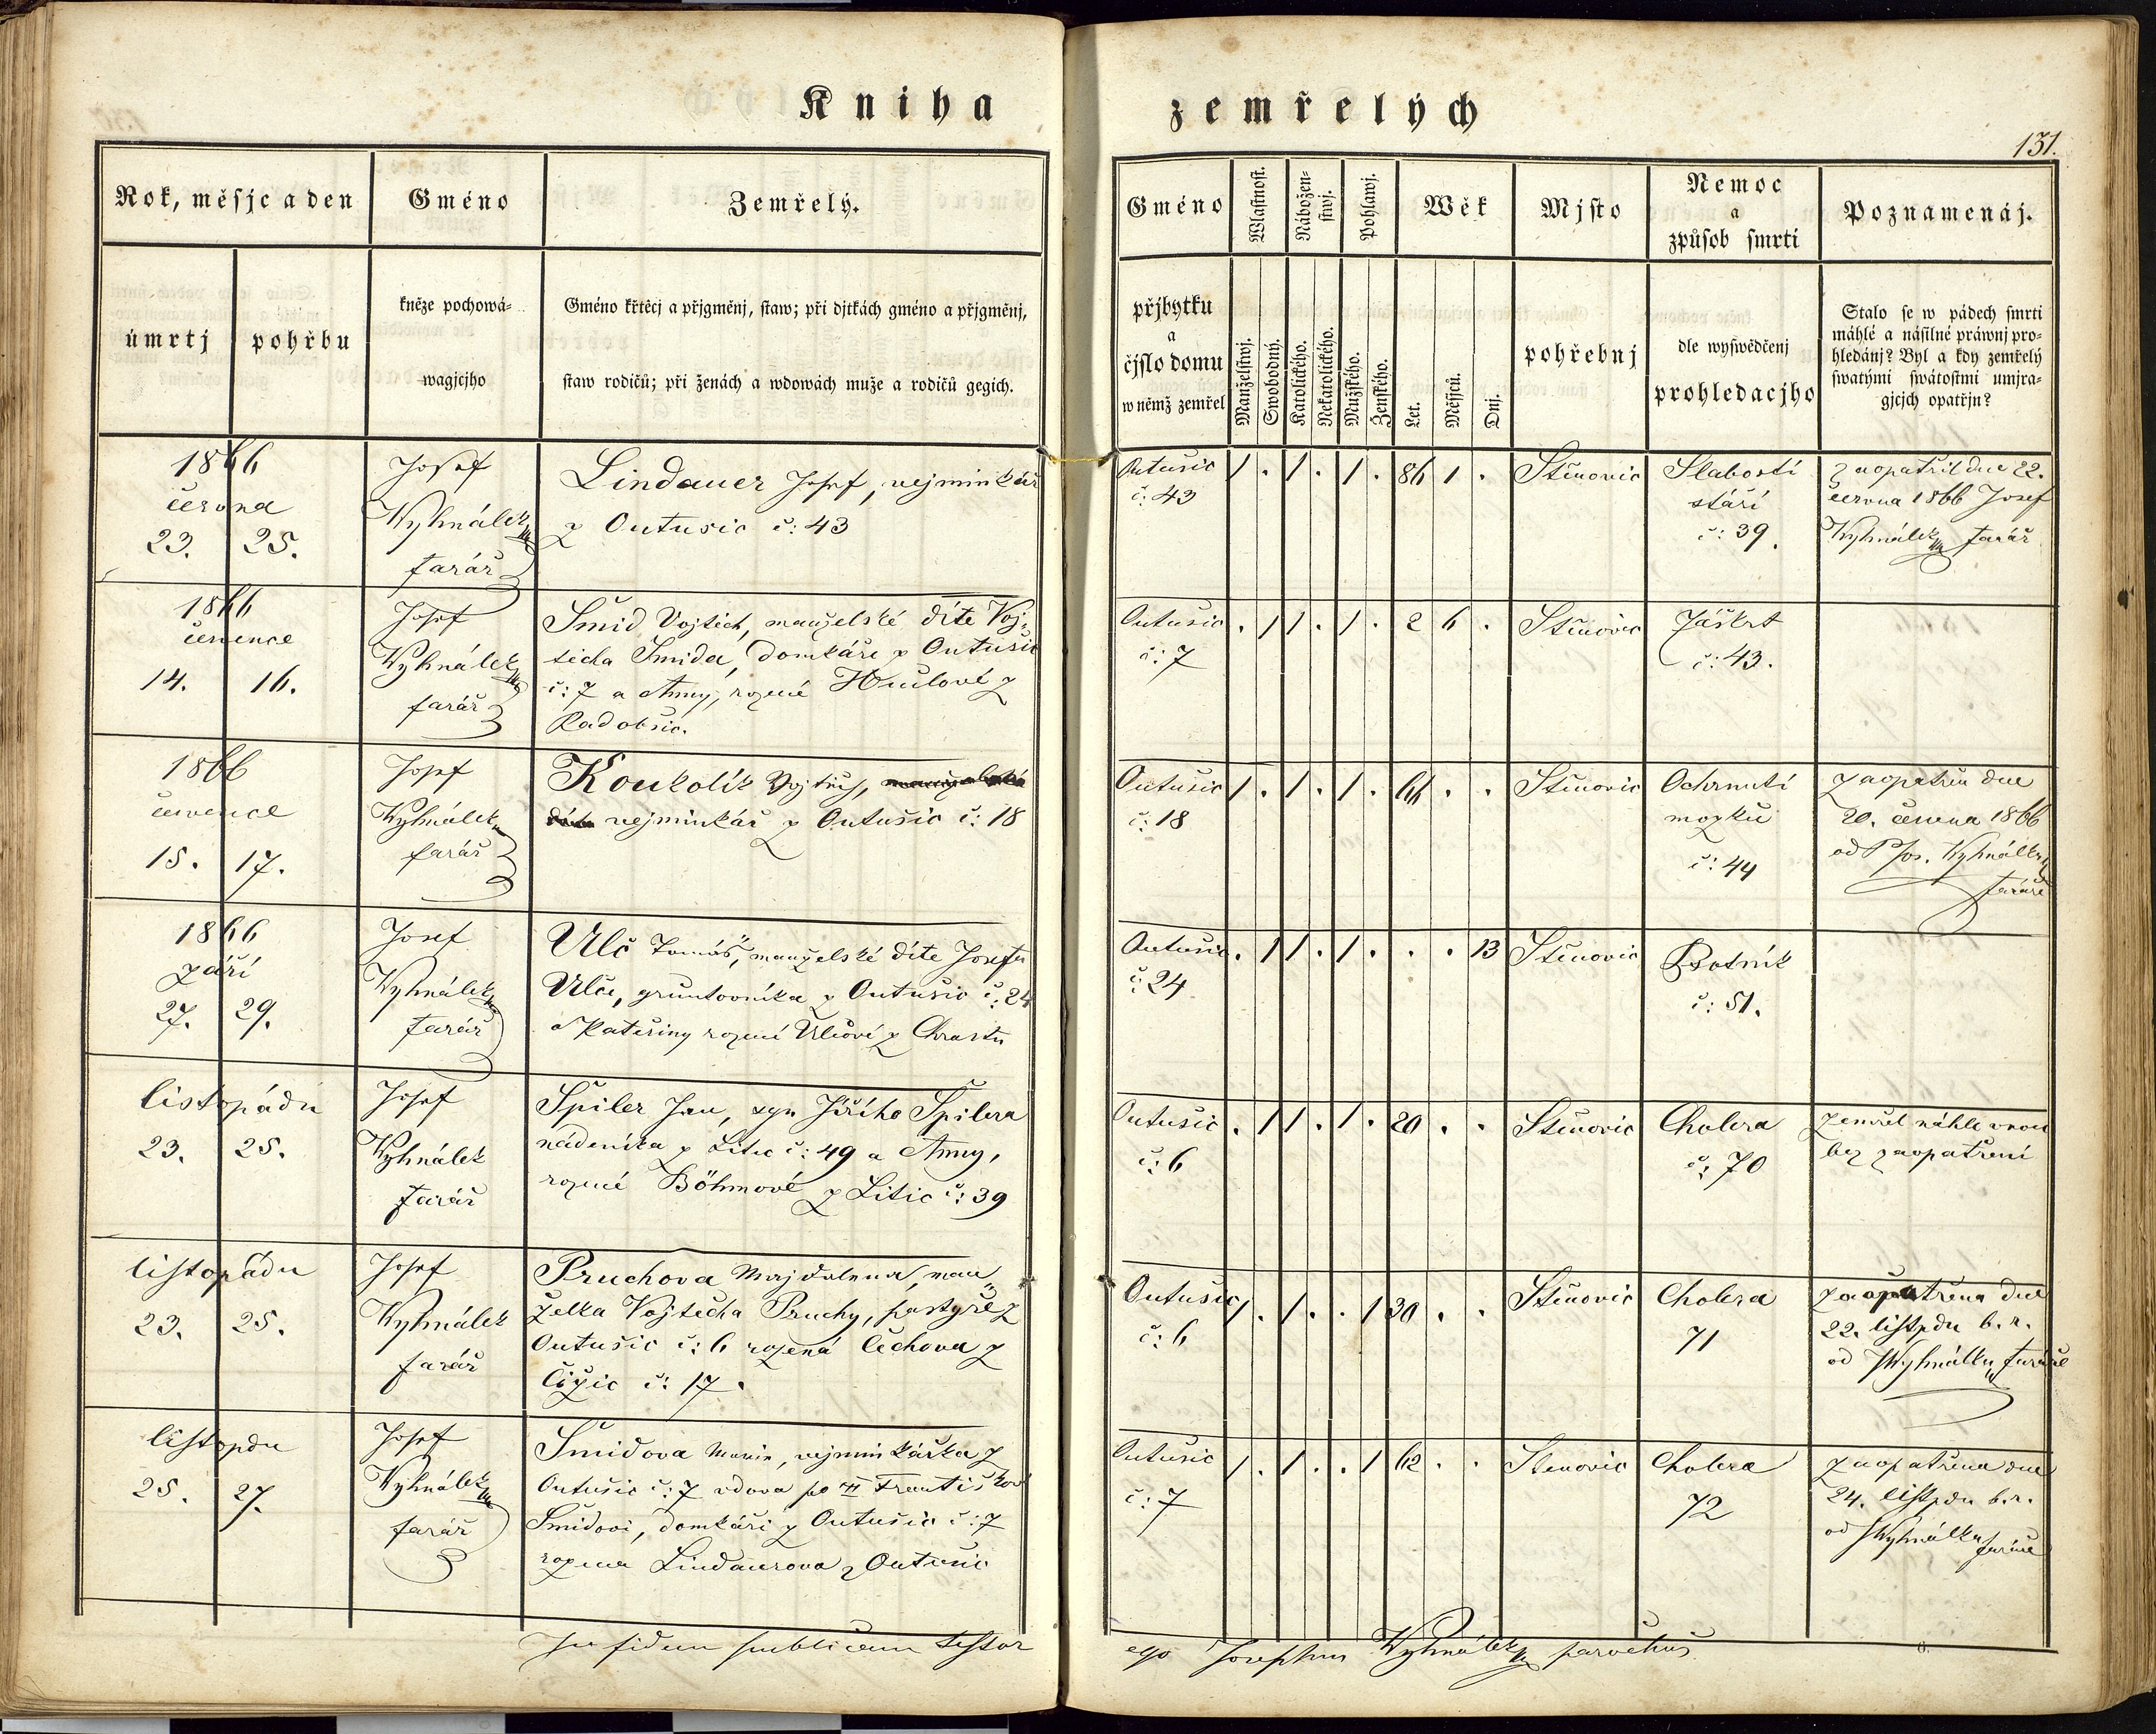 Kniha zemřelých
131.
Rok, měsjc a den
Gméno
Zemřelý.
Gméno
Wlastnost.
Nábožen-
stwj.
Pohlawj.
Wěk
Mjsto
Nemoc
a
způsob smrti
Poznamenáj.
úmrtj
pohřbu
kněze pochowá-
wagjcjho
Gméno křtěcj a přjgměnj, staw; při djtkách gméno a přjgměnj,
staw rodičů; při ženách a wdowách muže a rodičů gegich.
přjbytku
a
čjslo domu
w němž zemřel
Manželstwj.
Swobodný.
Katolického.
Nekatolického.
Mužského.
Ženského.
Let.
Měsjců.
Dnj.
pohřebnj
dle wyswědčenj
prohledacjho
Stalo se w pádech smrti
náhlé a násilné práwnj pro-
hledánj? Byl a kdy zemřelý
swatými swátostmi umjra-
gjcjch opatřjn?
1866
června
23. 25.
Josef
Wyhnálek
farář
Lindauer Josef, vejminkář
z Outusic č: 43
Outušic
č. 43
1 . 1 . 1 . 86 1 .
Štěnovic
Slabostí
stáří
č: 39.
Zaopatřil dne 22.
června 1866 Josef
Wyhnálek farář
1866
července
14. 16.
Josef
Wyhnálek
farář
Šmid Vojtěch, manželské dítě Voj-
těcha Šmida, domkáře z Outušic
č: 7 a Anny, rozené Hučlové z
Radobčic.
Outušic
č: 7
. 1 1 . 1 . 2 6 .
Štěnovic
Záškrt
č: 43.
1866
července
15. 17.
Josef
Wyhnálek
farář
Koukolík Vojtěch, manželské
dítě vejminkář z Outušic č: 18
Outušic
č: 18
1 . 1 . 1 . 66 . .
Štěnovic
Ochrnutí
mozku
č: 44
zaopatřen dne
20. června 1866
od P Jos. Wyhnálka
faráře
1866
září
27. 29.
Josef
Wyhnálek
farář
Ulč Tomáš, manželské dítě Josefa
Ulče, gruntovníka z Outušic č: 24
a Kateřiny rozené Ulčové z Chrastu
Outušic
č: 24
. 1 1 . 1 . . . 13
Štěnovic
Psotník
č: 51.
listopádu
23. 25.
Josef
Wyhnálek
farář
Špiler Jan, syn Jiřího Špilera
nádeníka z Litic č: 49 a Anny,
rozené Böhmové z Litic č: 39
Outušic
č: 6
. 1 1 . 1 . 20 . .
Štěnovic
Cholera
č: 70
zemřel náhle v noci
bez zaopatření
listopádu
23. 25.
Josef
Wyhnálek
farář
Pruchova Majdalena, man-
želka Vojtěcha Pruchy, pastýře z
Outušic č: 6 rozená Čechova z
Čižic č: 17.
Outušic
č: 6
1 . 1 . . 1 30 . .
Štěnovic
Cholera
71
zaopatřena dne
22. listpdu b. r.
od J Wyhnálka, faráře
listopdu
25. 27.
Josef
Wyhnálek
farář
Šmidova Marie, vejminkářka z
Outušic č: 7 vdova po Františkovi
Šmidovi, domkáři z Outušic č: 7
rozena Lindauerova z Outušic
Outušic
č: 7
1 . 1 . . 1 62 . .
Štěnovic
Cholera
72
zaopatřena dne
24. listpdu b. r.
od J Wyhnálka faráře
In fidem publicam testor ego Josephus Wyhnálek parochus